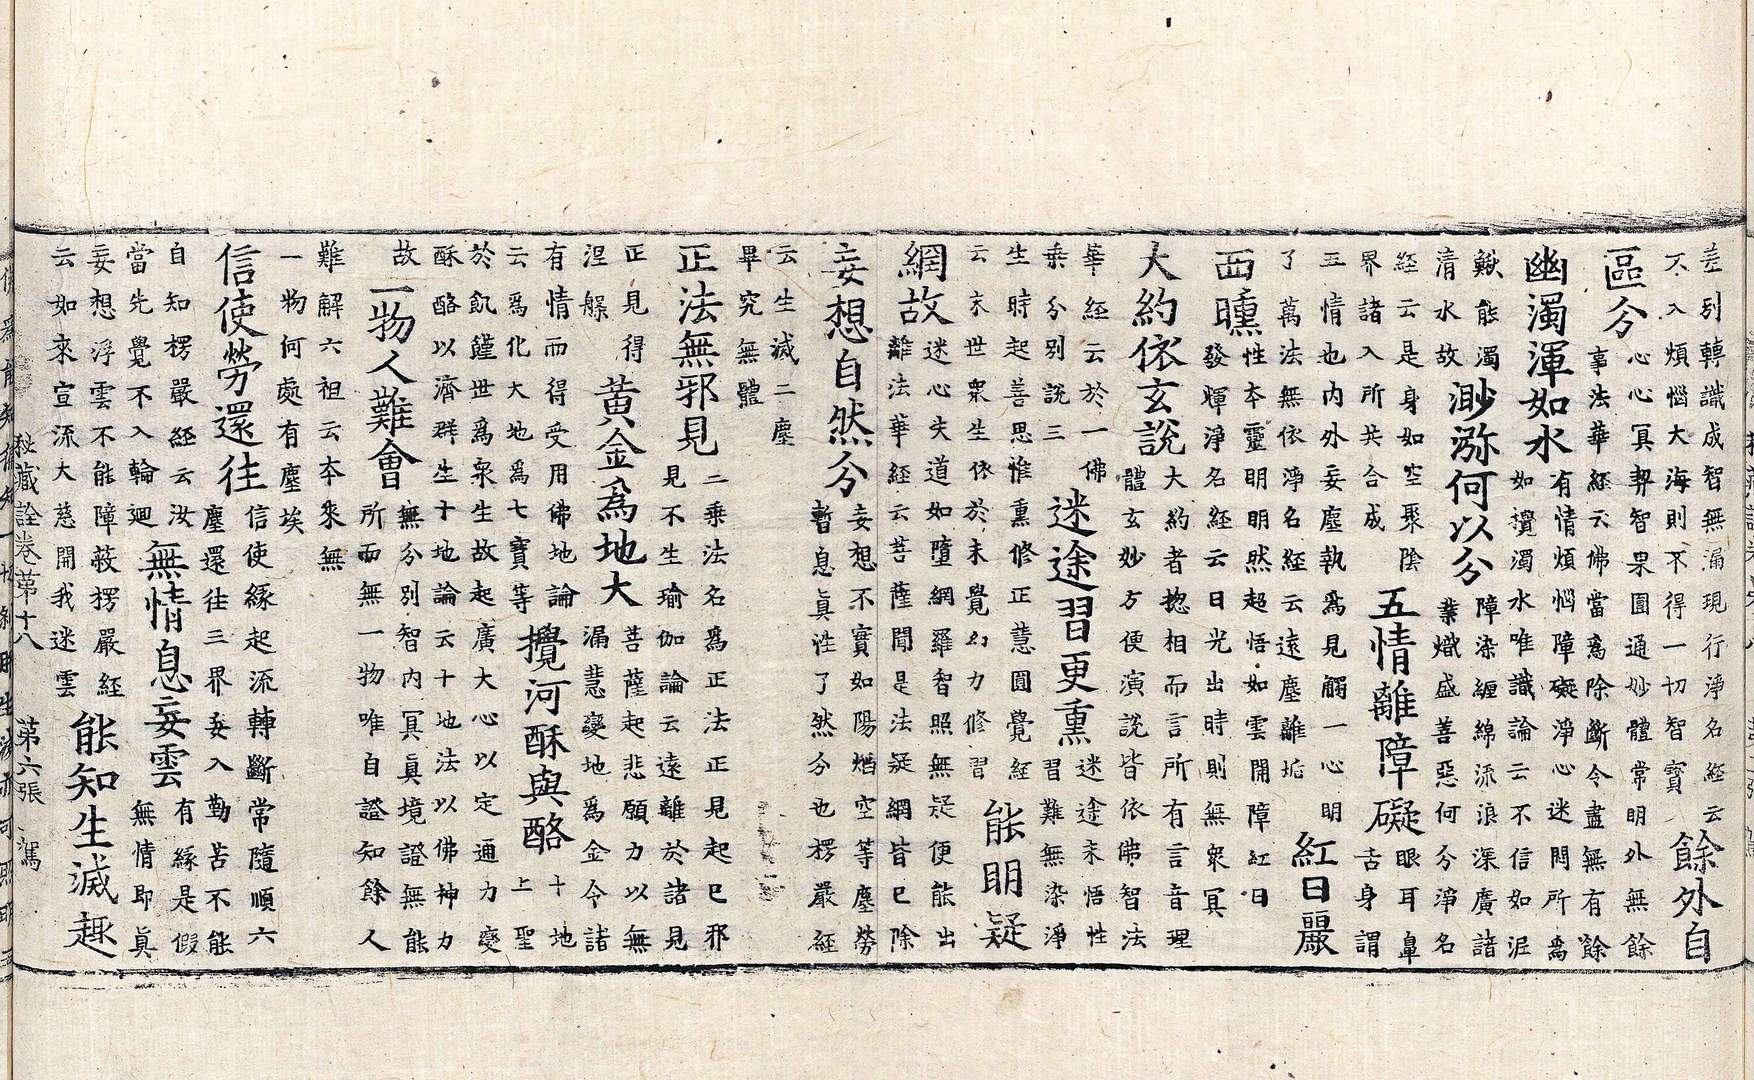 差別轉識成智無漏現行淨名經云
不入煩惱大海則不得一切智寶
餘外自
區分
心心冥契智果圓通妙體常明外無餘
事法華經云佛當爲除斷令盡無有餘
幽濁渾如水
有情煩惱障礙淨心迷悶所爲
如攪濁水唯識論云不信如泥
鰍能濁
清水故
渺瀰何以分
障染纏綿流浪深廣諸
業熾盛善惡何分淨名
經云是身如空聚陰
界諸入所共合成
五情離障礙
眼耳鼻
舌身謂
五情也內外妄塵執爲見觸一心明
了萬法無依淨名經云遠塵離垢
紅日麗
西曛
性本靈明明然超悟如雲開障紅日
發輝淨名經云日光出時則無衆冥
大約依玄說
大約者揔相而言所有言音理
體玄妙方便演說皆依佛智法
華經云於一佛
乘分別說三
迷途習更熏
迷途未悟性
習難無染淨
生時起善思惟熏修正慧圓覺經
云末世衆生依於未覺幻力修習
能明疑
網故
迷心失道如墮網羅智照無疑便能出
離法華經云菩薩聞是法疑網皆已除
妄想自然分
妄想不實如陽焰空等塵勞
暫息眞性了然分也楞嚴經
云生滅二塵
畢究無體
正法無邪見
二乘法名爲正法正見起已邪
見不生瑜伽論云遠離於諸見
正見得
涅槃
黃金爲地大
菩薩起悲願力以無
漏慧變地爲金令諸
有情而得受用佛地論
云爲化大地爲七寶等
攪河酥與酪
十地
上聖
於飢饉世爲衆生故起廣大心以定通力變
酥酪以濟群生十地論云十地法以佛神力
故
一物人難會
無分別智內冥眞境證無能
所而無一物唯自證知餘人
難解六祖云本來無
一物何處有塵埃
信使勞還往
信使緣起流轉斷常隨順六
塵還往三界妄入勤苦不能
自知楞嚴經云汝
當先覺不入輪迴
無情息妄雲
有緣是假
無情即眞
妄想浮雲不能障蔽楞嚴經
云如來宣流大慈開我迷雲
能知生滅趣
秘藏詮卷第十八 第六張 駕